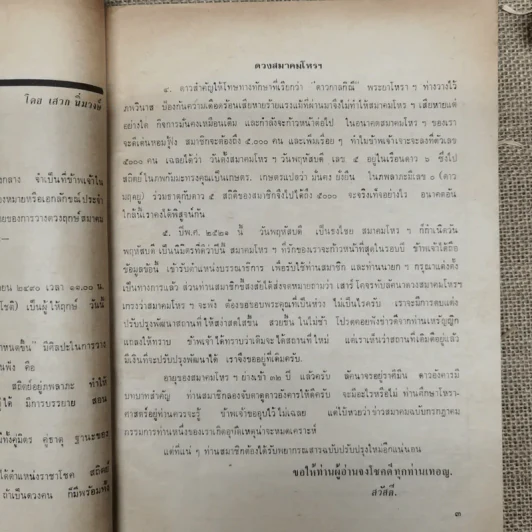 โดย เสวก นิ่มวงษ์
กลาง จำเป็นที่ข้าพเจ้าใน
องหมายหรือเอกลักษณ์ประจำ
ยของการวางดวงฤกษ์สมาคม
ยน ๒๔๙๐ เวลา ๑๑.๐๐ น.
โชติ) เป็นผู้ให้ฤกษ์ วันนี้
ดวงสมาคมโหรฯ
๔. ดาวสำคัญให้โทษทางทักษาที่เรียกว่า "ดาวกาลกิณี" พระยาโหราฯ ท่านวางไว้
ภพวินาส ป้องกันความเดือดร้อนเสียหายร้ายแรงแม้ที่ผ่านมาจึงไม่ทำให้สมาคมโหร ฯ เสียหายแต่
อย่างใด กิจการมั่นคงเหมือนเดิม และกำลังจะก้าวหน้าต่อไป ในอนาคตสมาคมโหร ฯ ของเรา
จะดีเด่นหอมฟุ้ง สมาชิกจะต้องถึง ๕,๐๐๐ คน และเพิ่มเรื่อย ๆ ทำไมข้าพเจ้าเจาะจงลงที่ตัวเลข
๕๐๐๐ คน เฉลยได้ว่า วันตั้งสมาคมโหร ฯ วันพฤหัสบดี เลข ๕ อยู่ในเรือนดาว ๖ ซึ่งไป
สถิตย์ในภพกัมมะทรงคุณเป็นเกษตร. เกษตรแปลว่า มั่นคง ยั่งยืน ในภพลาภะมีเลข ๐ (ดาว
มฤตยู) ร่วมธาตุกับดาว ๕ สถิติของสมาชิกจึงไปได้ถึง ๕๐๐๐ จะจริงเท็จอย่างไร อนาคตอัน
ใกล้นี้เราคงได้พิสูจน์กัน
๕. ปีพ.ศ. ๒๕๒๑ นี้ วันพฤหัสบดี เป็นธงไชย สมาคมโหร ฯ ก็ถือกำเนิดวัน
พฤหัสบดี เป็นนิมิตรที่ดีว่าปีนี้ สมาคมโหร ฯ ที่รักของเราจะก้าวหน้าที่สุดในรอบปี ข้าพเจ้าได้ถือ
ข้อมูลข้อนี้ เข้ารับตำแหน่งบรรณาธิการ เพื่อรับใช้ท่านสมาชิก และท่านนายก ฯ กรุณาแต่งตั้ง
เป็นทางการแล้ว ส่วนท่านสมาชิกขี้สงสัยได้ส่งจดหมายถามว่า เสาร์ โคจรทับลัคนาดวงสมาคมโหรฯ
เกรงว่าสมาคมโหร ฯ จะพัง ต้องขอขอบพระคุณที่เป็นห่วง ไม่เป็นไรครับ เราจะมีการตบแต่ง
ปรับปรุงพัฒนาสถานที่ ให้สง่าสดใสขึ้น สวยขึ้น ในไม่ช้า โปรดคอยฟังข่าวดีจากท่านเหรัญญิก
แถลงให้ทราบ ข้าพเจ้า ได้ทราบว่าเดิมจะ ได้สถานที่ ใหม่ แต่เราเห็นว่าสถานที่เดิมดีอยู่แล้ว
มีเงินที่จะปรับปรุงพัฒนาได้ เราจึงขออยู่ที่เดิมครับ.
อายุของสมาคมโหร ฯ ย่างเข้า ๓๒ ปี แล้วครับ ลัคนาจรอยู่ราศีมีน ดาวอังคารมี
บทบาทสำคัญ ท่านสมาชิกลองจับตาดูดาวอังคารให้ดีครับ จะมีอะไรหรือไม่ ท่านศึกษาโหรา-
ศาสตร์อยู่ท่านควรจะรู้ ข้าพเจ้าขออุบไว้ ไม่เฉลย
กรรมการท่านหนึ่งของเราเกิดอุบัติเหตุน่าจะหมดเคราะห์
แต่ที่แน่ ๆ ท่านสมาชิกต้องได้รับพยากรณสารฉบับปรับปรุงใหม่อีกแน่นอน
ขอให้ท่านผู้อ่านจงโชคดีทุกท่านเทอญ.
สวัสดี.
๓